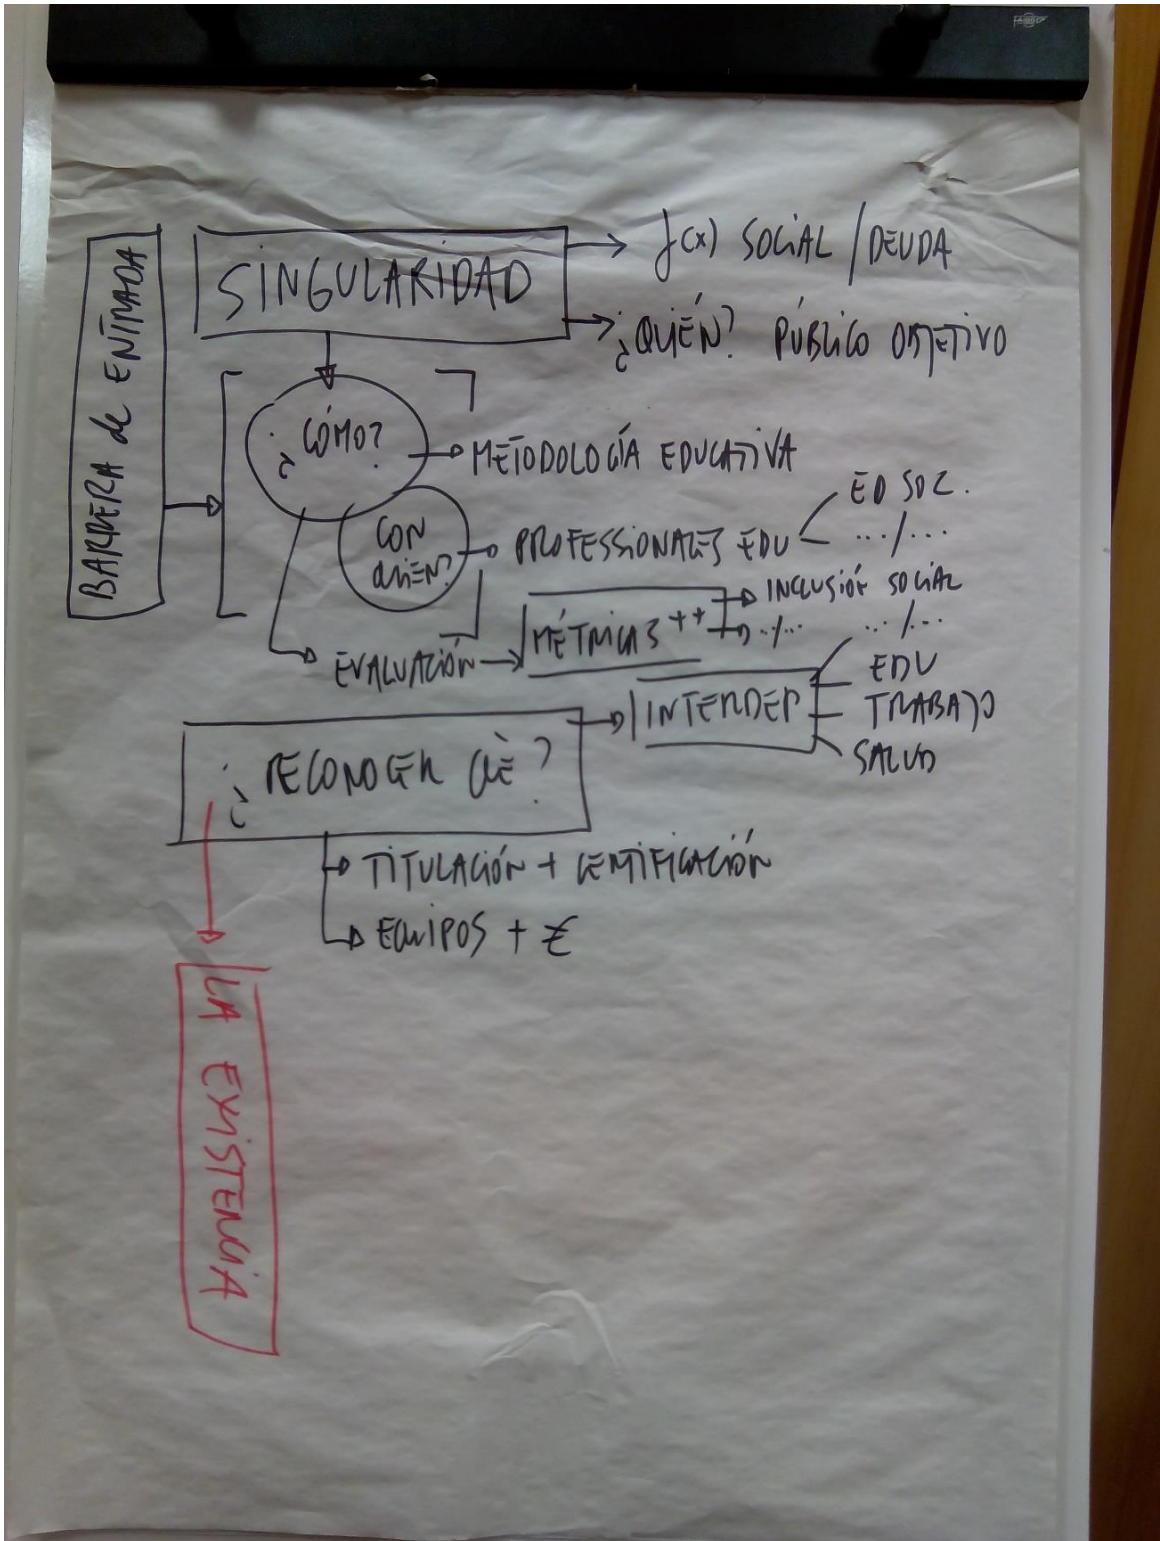 BARRERA de ENTRADA
SINGULARIDAD
f(x) SOCIAL / DEUDA
¿QUIÉN? PÚBLICO OBJETIVO
¿CÓMO?
METODOLOGÍA EDUCATIVA
CON QUIÉN?
PROFESSIONALES EDU
ED SOC.
.../...
EVALUACIÓN
MÉTRICAS ++
INCLUSIÓN SOCIAL
../..
¿RECONOCER QUÈ?
INTERDEP
.../...
EDU
TRABAJO
SALUD
TITULACIÓN + CERTIFICACIÓN
EQUIPOS + €
LA EXISTENCIA